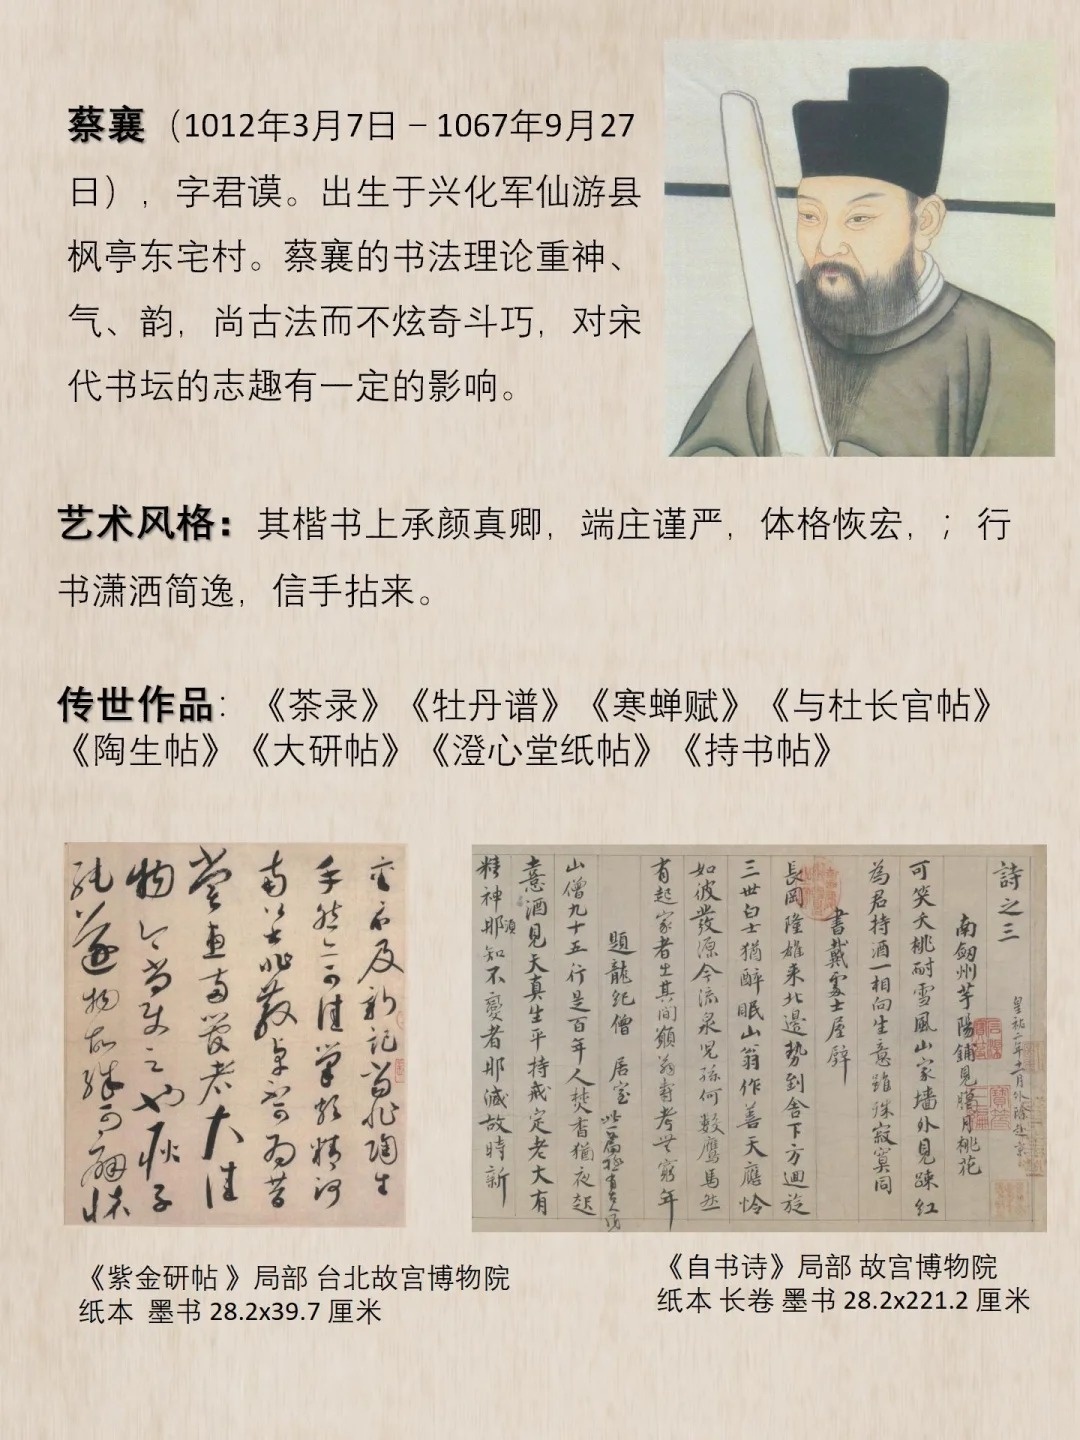 蔡襄（1012年3月7日 – 1067年9月27
日），字君谟。出生于兴化军仙游县
枫亭东宅村。蔡襄的书法理论重神、
气、韵，尚古法而不炫奇斗巧，对宋
代书坛的志趣有一定的影响。
艺术风格：其楷书上承颜真卿，端庄谨严，体格恢宏，；行
书潇洒简逸，信手拈来。
传世作品：《茶录》《牡丹谱》《寒蝉赋》《与杜长官帖》
《陶生帖》《大研帖》《澄心堂纸帖》《持书帖》
詩之三
南劒州芋陽鋪見臘月桃花
可笑夭桃耐雪風山家墻外見疎紅
為君持酒一相向生意雖殊寂寞同
書戴處士屋壁
長岡隆雄來北邊勢到舍下方迴旋
三世白士猶醉眠山翁作善天應怜
如彼發源今流泉兒孫何數鷹馬然
有起家者出其間願翁壽考世窮年
題龍紀僧居室
山僧九十五行是百年人焚香猶夜起
憙酒見天真生平持戒定老大有
精神須知不變者那減故時新
《紫金研帖 》局部 台北故宫博物院
纸本 墨书 28.2x39.7 厘米
《自书诗》局部 故宫博物院
纸本 长卷 墨书 28.2x221.2 厘米